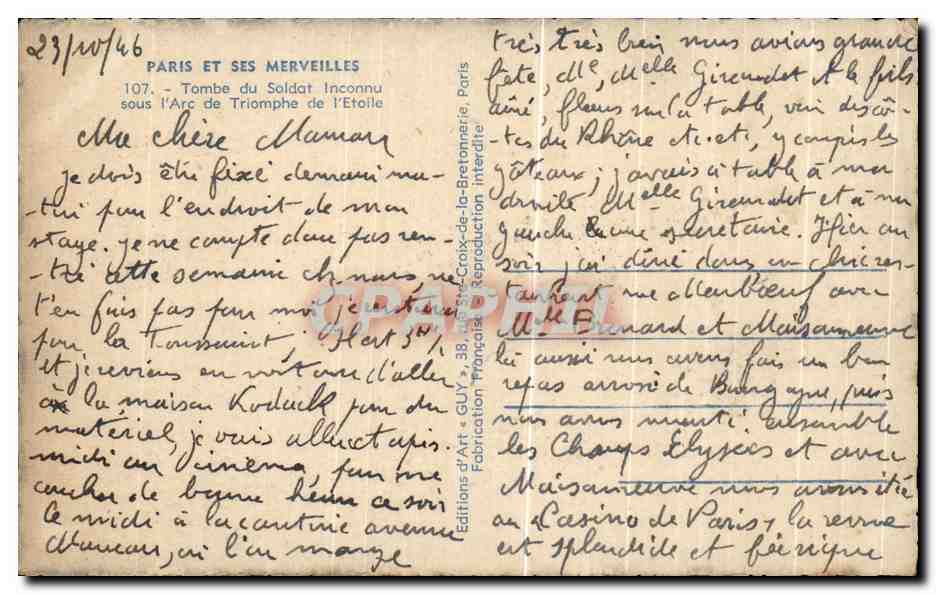 23/10/46
PARIS ET SES MERVEILLES
107. - Tombe du Soldat Inconnu
sous l'Arc de Triomphe de l'Etoile
Ma chère Maman
je dois être fixé demain ma-
-tin pour l'endroit de mon
stage. je ne compte donc pas ren-
-tré cette semaine chez nous, ne
t'en fais pas pour moi, je
pour la Toussaint, il est 3H ½
et je reviens en voiture d'aller
à la maison Kodack pour du
matériel, je vais aller cet après
midi au cinéma, pour me
coucher de bonne heure ce soir
Ce midi à la cantine avenue
où l'on mange
très très bien nous avions grande
fête, Me, Melle Giraudot et le fils
aîné, fleurs sur la table, vin des cô-
-tes du Rhône etc. etc, y compris les
gâteaux ; j'avais à table à ma
droite Melle Giraudot et à ma
gauche une secrétaire. Hier au
soir j'ai dîné dans un chic res-
-taurant rue Marbœuf avec
Melle Brunard et Maisonneuve
là aussi nous avons fait un bon
repas arrosé de Bourgogne, puis
nous avons monté ensemble
les Champs Elysées et avec
Maisonneuve nous avons été
au "Casino de Paris" la revue
est splendide et féérique
Editions d'Art « GUY », 38, rue Ste-Croix-de-la-Bretonnerie, Paris
Fabrication Française - Reproduction interdite
CPAPHIL